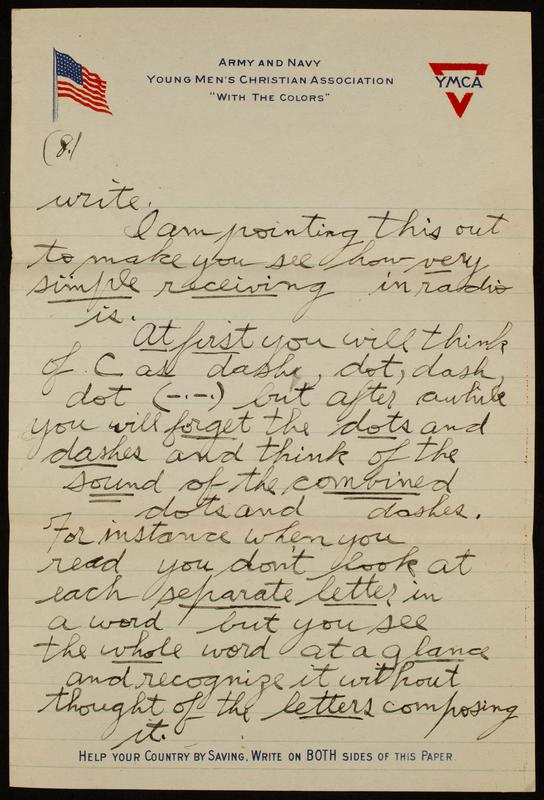 ARMY AND NAVY
YOUNG MEN'S CHRISTIAN ASSOCIATION
"WITH THE COLORS"
YMCA
(8.)
write.
I am pointing this out
to make you see how very
simple receiving in radio
is.
At first you will think
of C as dash, dot, dash,
dot (-.-.) but after awhile
you will forget the dots and
dashes and think of the
sound of the combined
dots and dashes.
For instance when you
read you don't look at
each separate letter in
a word but you see
the whole word at a glance
and recognize it without
thought of the letters composing
it.
HELP YOUR COUNTRY BY SAVING. WRITE ON BOTH SIDES OF THIS PAPER